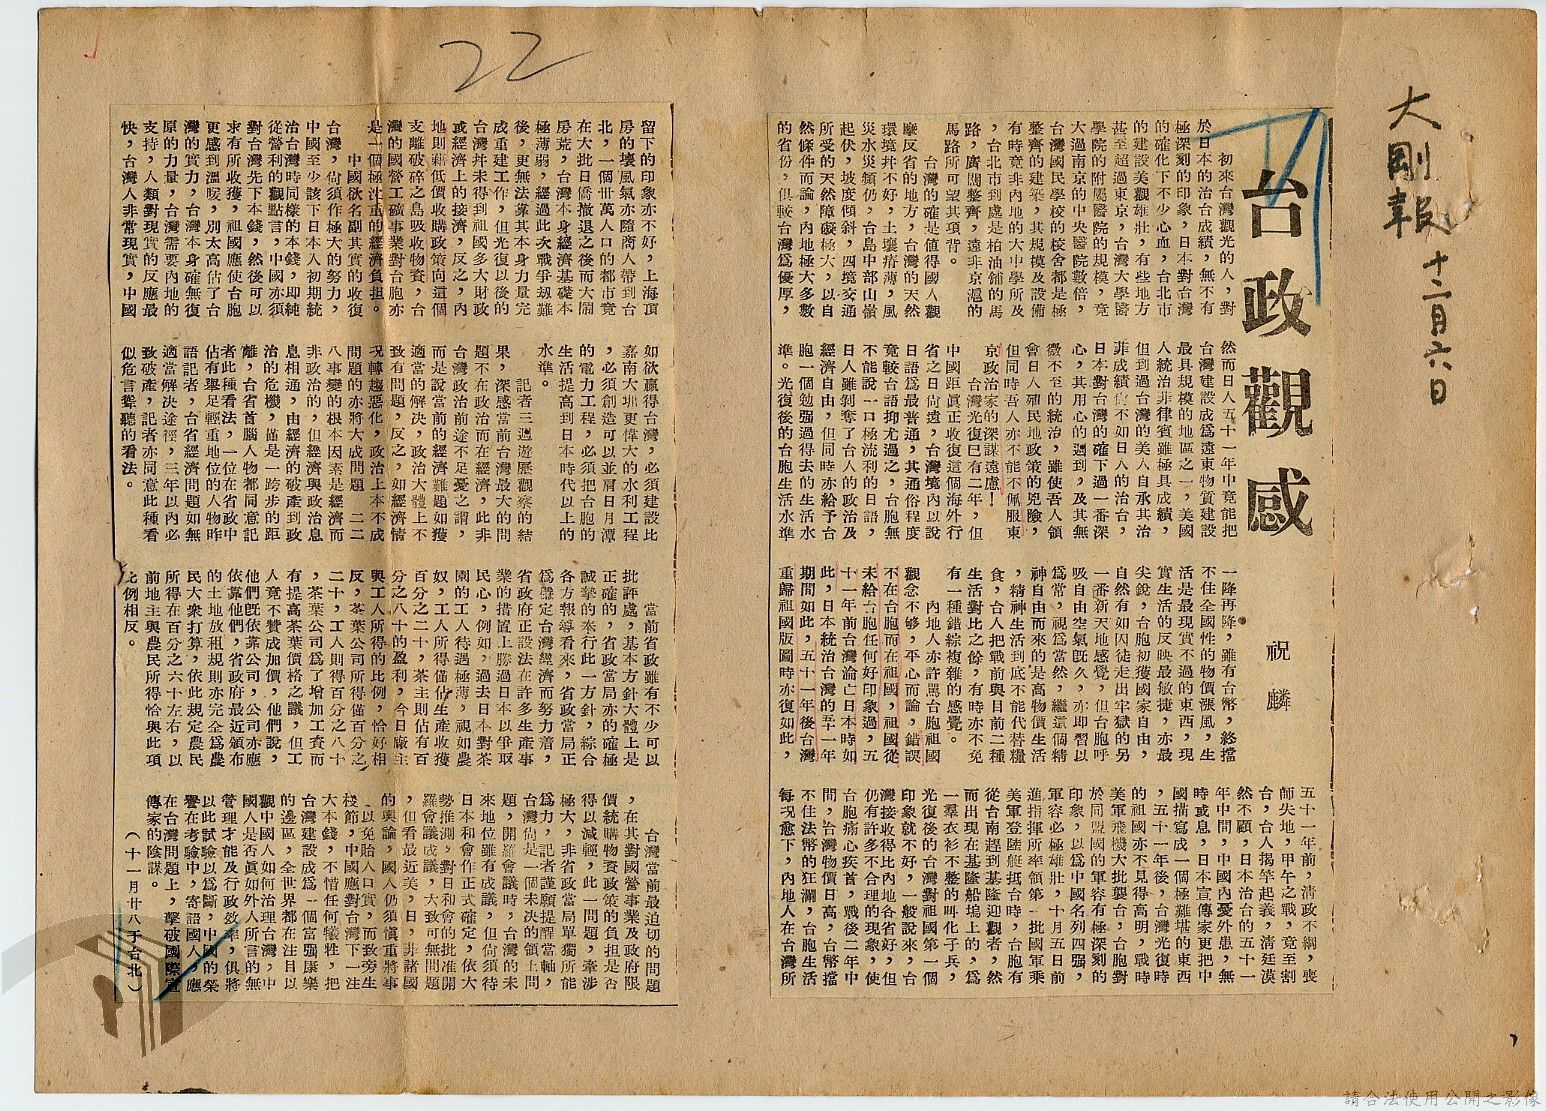 大剛報 十二月六日
22
台政觀感
祝麟
初來台灣觀光的人，對
於日本的治台成績，無不有
極深刻的印象，日本對台灣
的確化下不少心血，台北市
的建設美觀雄壯，有些地方
甚至超過東京，台灣大學醫
學院的附屬醫院的規模，竟
大過南京的中央醫院數倍，
台灣國民學校的校舍都是極
整齊的建築，其規模及設備
有時竟非內地的大中學所及
，台北市到處是柏油舖的馬
路，廣闊整齊，遠非京滬的
馬路所可望其項背。
台灣的確是值得國人觀
摩反省的地方，台灣的天然
環境并不好，土壤瘠薄，風
災水災頻仍，台島中部山嶺
起伏，坡度傾斜，四境交通
所受的天然障礙極大，以自
然條件而論，內地極大多數
的省份，俱較台灣為優厚，
然而日人五十一年中竟能把
台灣建設成為遠東物質建設
最具規模的地區之一，美國
人統治非律賓雖極具成績，
但到過台灣的美人自承其治
菲成績竟不如日人的治台，
日本對台灣的確下過一番深
心，其用心的週到，及其無
微不至的統治，雖使吾人領
會日人殖民地政策的兇險，
但同時吾人亦不能不佩服東
京政治家的深謀遠慮！
台灣光復已有二年，但
中國距眞正收復這個海外行
省之日尙遠，台灣境內以說
日語為最普通，其通俗程度
竟較台語抑尤過之，台胞無
不能說一口極流利的日語，
日人雖剝奪了台人的政治及
經濟自由，但同時亦給予台
胞一個勉强過得去的生活水
準。光復後的台胞生活水準
一降再降，雖有台幣，終擋
不住全國性的物價漲風，生
活是最現實不過的東西，現
實生活的反映最敏捷，亦最
尖銳，台胞初獲國家自由，
自然有如囚徒走出牢獄的另
一番新天地感覺，但台胞呼
吸自由空氣既久，亦即習以
為常，視為當然，繼這個精
神自由而來的是高物價生活
，精神生活到底不能代替糧
食，台人把戰前與目前二種
生活對比之餘，有時亦不免
有一種錯綜複雜的感覺。
內地人亦許罵台胞祖國
觀念不够，平心而論，錯誤
不在台胞而在祖國，祖國從
未給台胞任何好印象過，五
十一年前台灣淪亡日本時如
此，日本統治台灣的五十一年
期間如此，五十一年後台灣
重歸祖國版圖時亦復如此，
五十一年前，清政不綱，喪
師失地，甲午之戰，竟至割
台，台人揭竿起義，清廷漠
然不顧，日本治台的五十一
年中間，中國內憂外患，無
時或息，日本宣傳家更把中
國描寫成一個極難堪的東西
，五十一年後，台灣光復時
的祖國亦不見得高明，戰時
美軍飛機大批襲台，台胞對
於同盟國的軍容有極深刻的
印象，以為中國名列四强，
軍容必極雄壯，十月五日前
進指揮所率領第一批國軍乘
美軍登陸艇抵台時，台胞有
從台南趕到基隆迎觀者，然
而出現在基隆船塢上的，為
一羣衣衫不整的叫化子兵，
光復後的台灣對祖國第一個
印象就不好，一般說來，台
灣接收得比內地各省好，但
仍有許多不合理的現象，使
台胞痛心疾首，戰後二年中
間，台灣物價日高，台幣擋
不住法幣的狂瀾，台胞生活
每況愈下，內地人在台灣所
留下的印象亦不好，上海頂
房的壞風氣亦隨商人帶到台
北，一個卅萬人口的都市竟
在大批日僑撤退之後而大鬧
房荒，台灣本身經濟基礎本
極薄弱，經過此次戰爭刼難
後，更無法靠其本身力量完
成重建工作，但光復以後的
台灣并未得到祖國多大財政
或經濟上的接濟，反之，內
地則藉低價收購政策向這個
支離破碎之島吸收物資，台
灣的國營工礦事業對台胞亦
是一個極沈重的經濟負担。
中國欲名副其實的收復
台灣，尙須作極大的努力，
中國至少該下日本人初期統
治台灣時同樣的本錢，即純
從營利的觀點言，中國亦須
對台灣先下本錢，然後可以
求有所收獲，祖國應使台胞
更感到溫暖，別太高估了台
灣的實力，台灣本身確無復
原的力量，台灣需要內地的
支持，人類對現實的反應最
快，台灣人非常現實，中國
如欲贏得台灣，必須建設比
嘉南大圳更偉大的水利工程
，必須創造可以並肩日月潭
的電力工程，必須把台胞的
生活提高到日本時代以上的
水準。
記者三週遊歷觀察的結
果，深感當前台灣最大的問
題不在政治而在經濟，此非
台灣政治前途不足憂之謂，
而是說當前的經濟難題如獲
適當的解決，政治大體上不
致有問題，反之，如經濟情
况轉趨惡化，政治上本不成
問題的亦將大成問題，二二
八事變的根本因素是經濟而
非政治的，但經濟與政治息
息相通，由經濟的破產到政
治的危機，僅是一跨步的距
離，台省首腦人物都同意記
者此種看法，一位在省政中
佔有舉足輕重地位的人物昨
語記者，台省經濟問題如無
適當解決途徑，三年以內必
致破產，記者亦同意此種看
似危言聳聽的看法。
當前省政雖有不少可以
批評處，基本方針大體上是
正確的，省政當局亦的確極
誠摯的奉行此一方針，綜合
各方報導看來，省政當局正
為穩定台灣經濟而努力着，
省政府正設法在許多生產事
業的措置上勝過日本以爭取
民心，例如，過去日本對茶
園的工人待遇極薄，視如農
奴，工人所得僅佔生產收獲
百分之二十，茶主則佔有百
分之八十的盈利，今日廠主
與工人所得的比例，恰好相
反，茶葉公司所得僅百分之
二十，工人則得百分之八十
，茶葉公司為了增加工資而
有提高茶葉價格之議，但工
人竟不贊成加價，他們說，
他們既依靠公司，公司亦應
依靠他們，省政府最近頒布
的土地放租規則亦完全為農
民大衆打算，依此規定農民
所得在百分之六十左右，以
前地主與農民所得恰與此項
比例相反。
台灣當前最迫切的問題
，在其對國營事業及政府限
價統購物資政策的負担是否
得以減輕，此一問題，牽涉
極大，非省政當局單獨所能
為力，記者謹願提醒當軸，
台灣尙是一個未決的領土問
題，開羅會議時，台灣的未
來地位雖有成議，但尙須待
日本和會作正式確定，依大
勢推測，對日和會的批准開
羅會議成議，大致可無問題
，但看最近美，日，非諸國
的輿論，國人仍須慎重將事
，以免貽人口實，而致旁生
枝節，中國應對台灣下一注
大本錢，不惜任何犧牲，把
台灣建設成為一個富强康樂
的邊區，全世界都在注目以
觀中國人如何治理台灣，中
國人是否眞如外人所言的無
管理才能及行政效率，俱將
以此試驗以為斷，中國的榮
譽在考驗中，寄語國人，應
在台灣問題上，擊破國際宣
傳家的陰謀。
（十一月廿八于台北）
請合法使用公開之影像